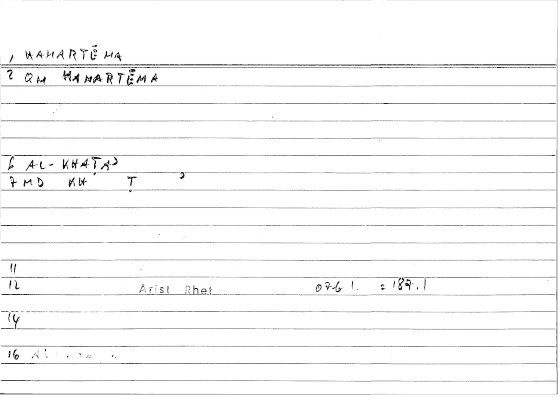 1 HAMARTĒMA
2 QM HAMARTĒMA
6 AL-KHAṬAʾ
7 MD KH Ṭ ʾ
11
12 Arist Rhet 0761. = 187.1
14
16